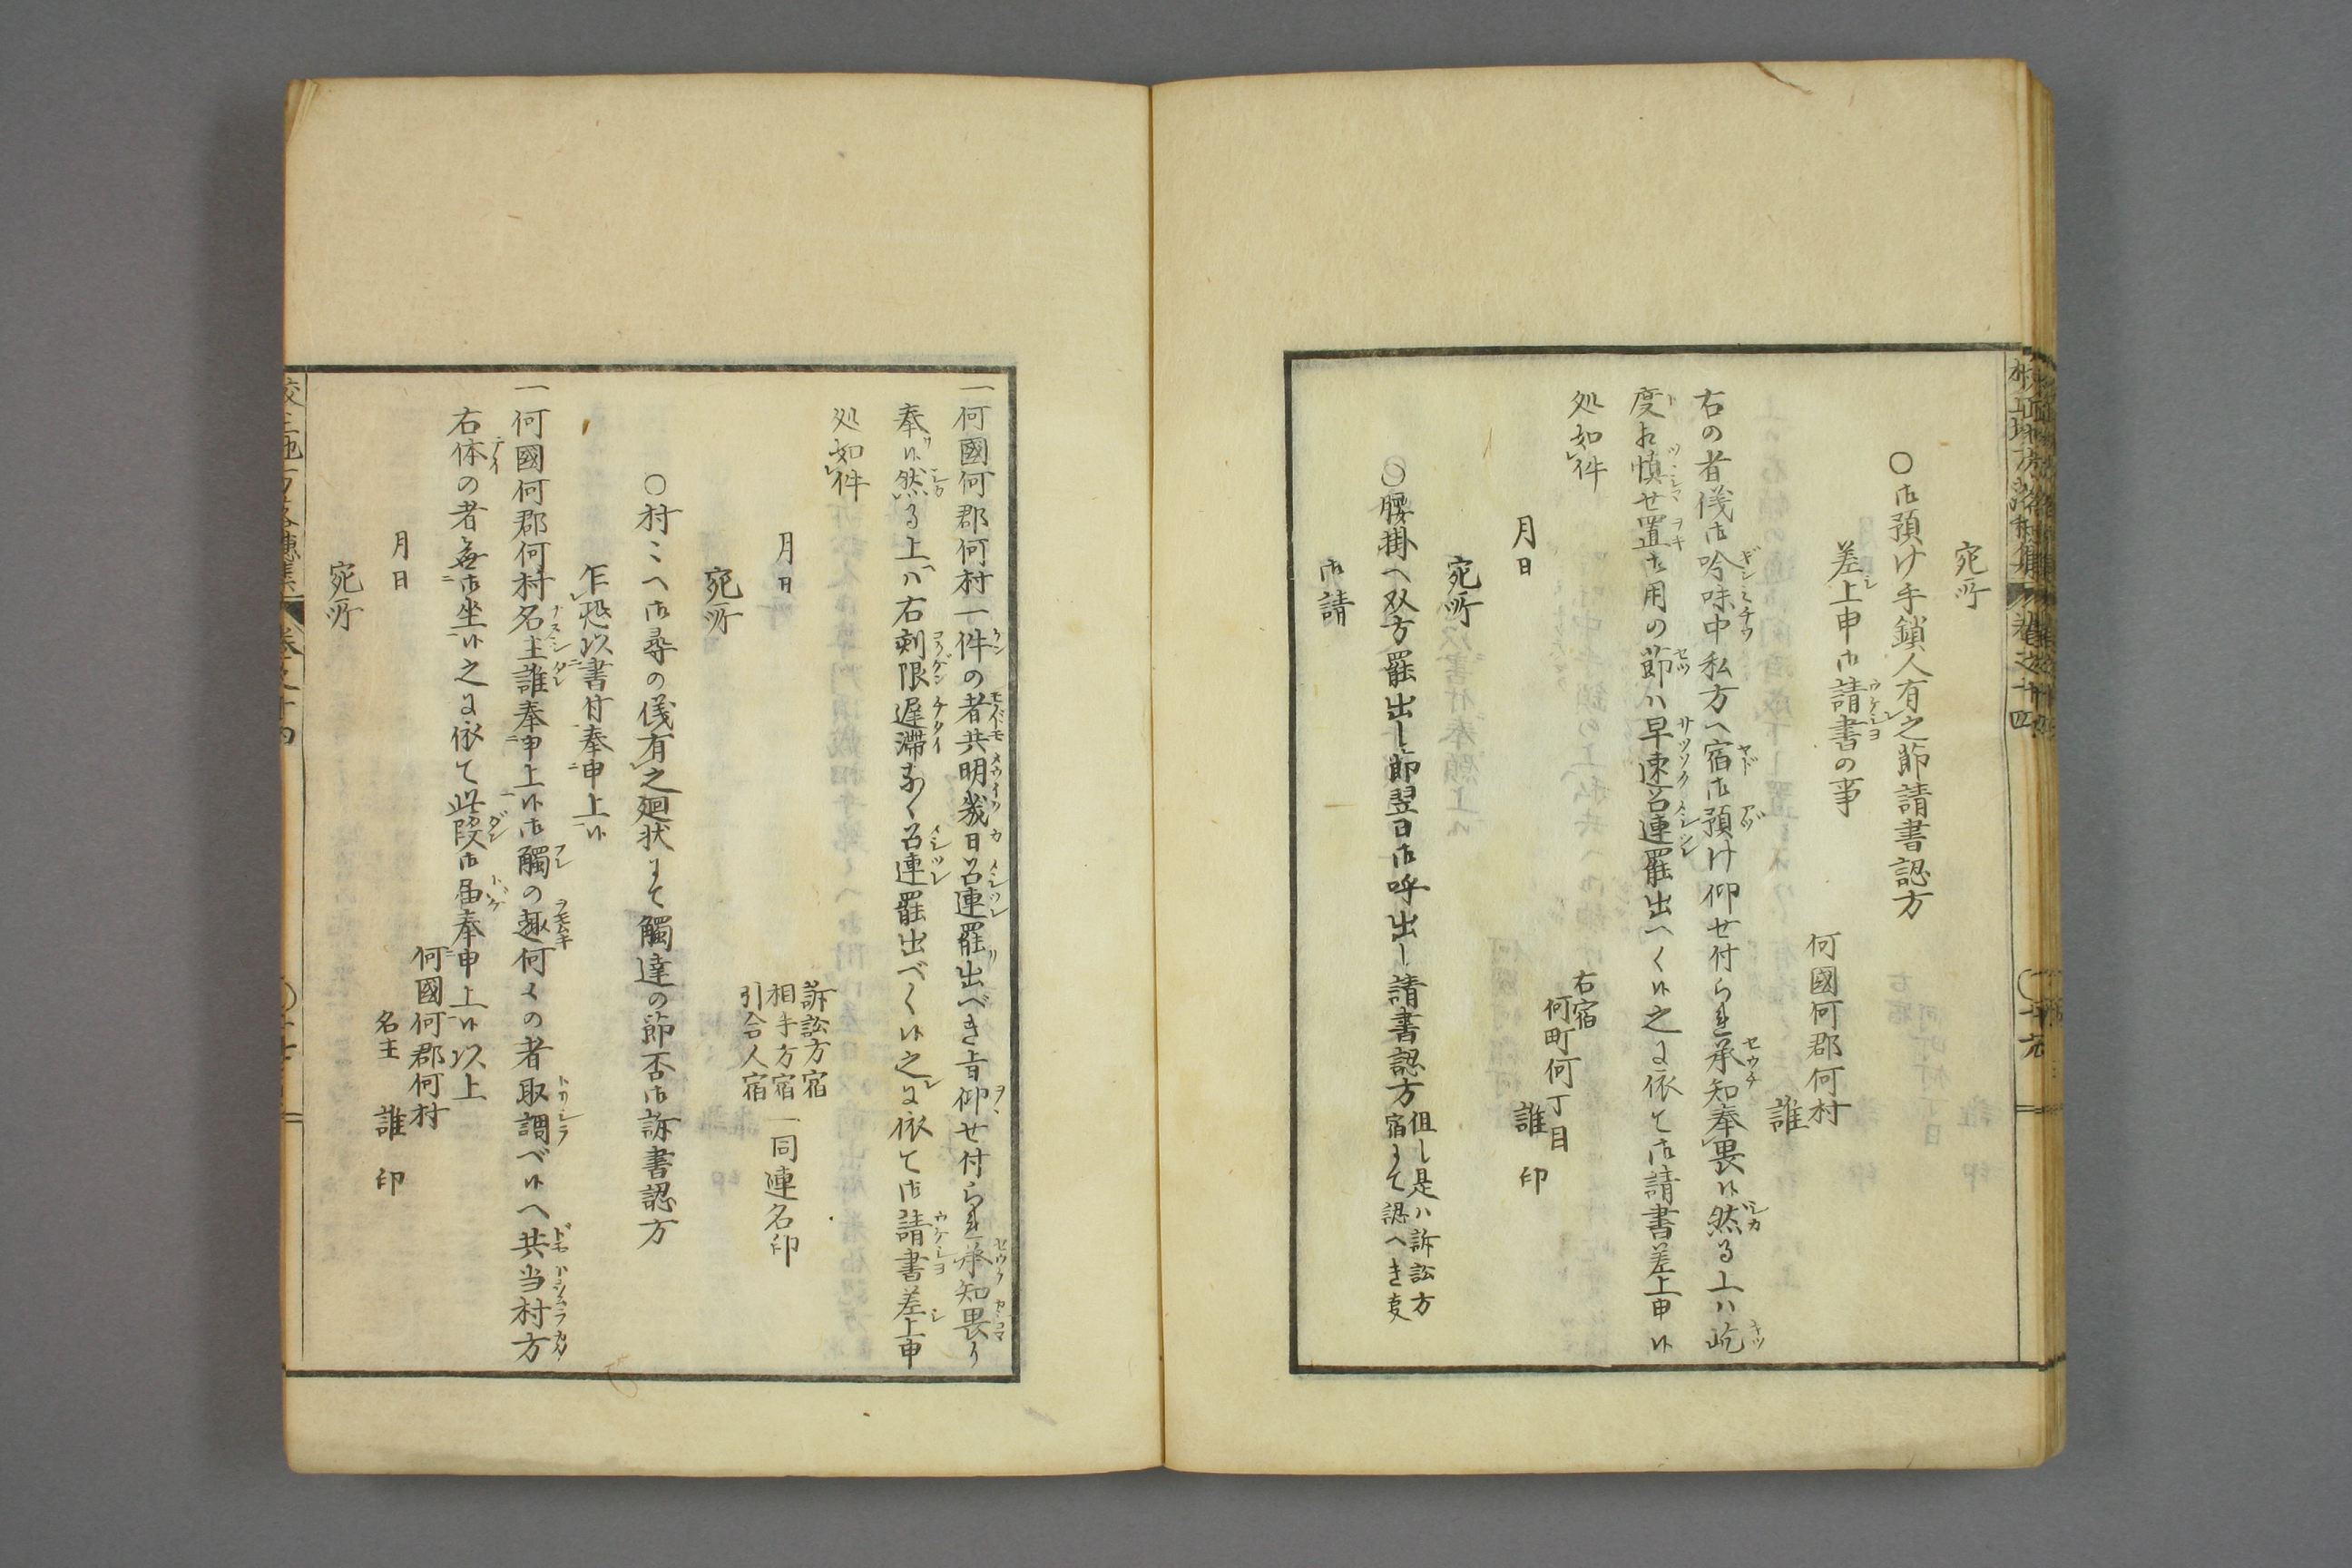 宛所
〇御預け手鎖人有之節請書認方
差上申御請書の事
何國何郡何村
誰
右の者儀御吟味中私方へ宿御預け仰せ付られ承知奉畏候然る上ハ屹
度相慎せ置御用の節ハ早速召連罷出へく候之に依て御請書差上申候
処如件
右宿
何町何丁目
月日
誰 印
宛所
〇腰掛へ双方罷出し節翌日御呼出し請書認方
但し是ハ訴訟方
宿にて認へき事
御請
一何國何郡何村一件の者共明幾日召連罷出べき旨仰せ付られ承知畏り
奉候然る上ハ右刻限遅滞なく召連罷出べく候之に依て御請書差上申
処如件
訴訟方宿
相手方宿
引合人宿
一同連名印
月日
宛所
〇村々へ御尋の儀有之廻状にて觸達の節否御訴書認方
乍恐以書付奉申上候
一何國何郡何村名主誰奉申上候御觸の趣何々の者取調べ候へ共当村方
右体の者無御坐候之に依て此段御届奉申上候以上
何國何郡何村
月日
名主 誰 印
宛所